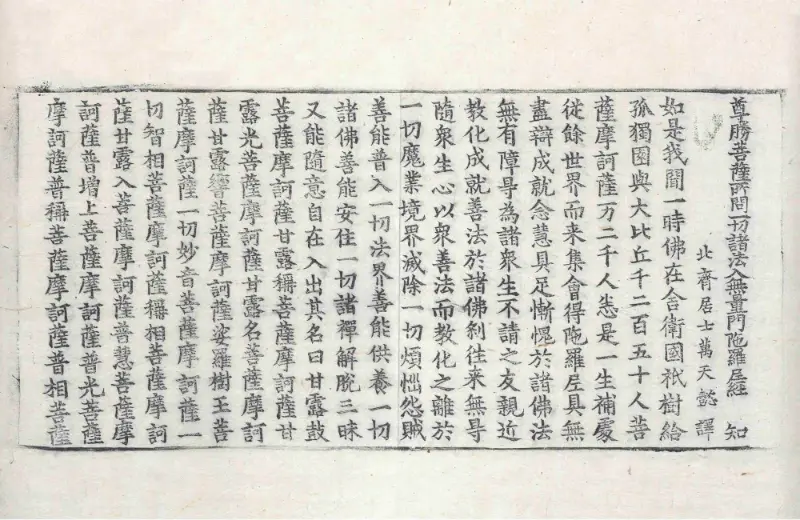 尊勝菩薩所問一切諸法入無量門陁羅尼經 知
北齊居士萬天懿 譯
如是我聞一時佛在舍衛國祇樹給
孤獨園與大比丘千二百五十人菩
薩摩訶薩万二千人悉是一生補處
從餘世界而来集會得陁羅尼具無
盡辯成就念慧具足慚愧於諸佛法
無有障㝵為諸衆生不請之友親近
教化成就善法於諸佛刹往来無㝵
隨衆生心以衆善法而教化之離於
一切魔業境界滅除一切煩惱怨賊
善能普入一切法界善能供養一切
諸佛善能安住一切諸禪解脫三昧
又能隨意自在入出其名曰甘露鼓
菩薩摩訶薩甘露稱菩薩摩訶薩甘
露光菩薩摩訶薩甘露名菩薩摩訶
薩甘露響菩薩摩訶薩娑羅樹王菩
薩摩訶薩一切妙音菩薩摩訶薩一
切智相菩薩摩訶薩稱相菩薩摩訶
薩甘露入菩薩摩訶薩普慧菩薩摩
訶薩普增上菩薩摩訶薩普光菩薩
摩訶薩普稱菩薩摩訶薩普相菩薩